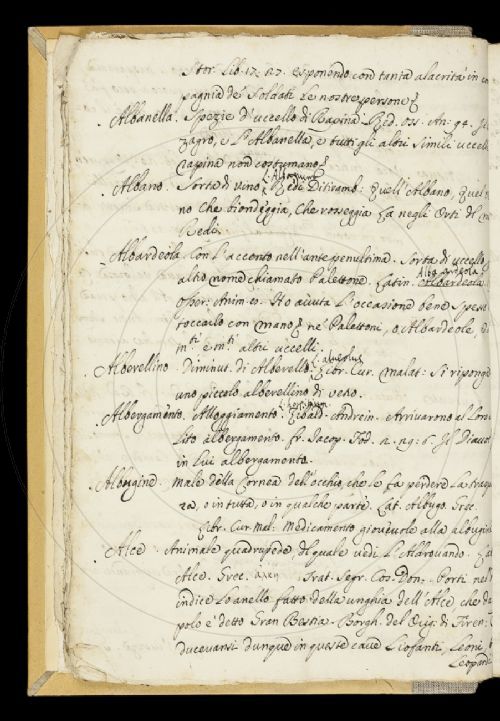 Stor. Lib. 17. 127. esponendo con tanta alacrità in co
pagnia de' Soldati le nostre persone
Albanella. Spezie d'uccello di Rapina. Red. oss. An: 94. Il
zagro, e l'Albanella, e tutti gli altri simili uccelli
rapina non costumano
Albano. Sorta di vino, Red. Ditiramb: quell'Albano, quel
no che biondeggia, che rosseggia là negli Orti del m
Redi.
Albardeola. Con l'accento nell'antepenultima. Sorta di uccello,
altro nome chiamato Palettone. Latin. Albardeola
Oper: Anim. 10. Ho avuta l'occasione bene spesso
toccarlo con mano ne' Palettoni, o Albardeole,
m.ti e m.ti altri uccelli.
Alberellino. Diminut. di Alberello. L. alveolus Libr. Cur. Malat: Si riponga
uno piccolo alberellino di vetro.
Albergamento. Alloggiamento. Zibald. Andrein. Arrivarono al Loro
lito albergamento. fr. Jacop. Tod. Il Diavol
in lui albergamento.
Albugine. Male della Cornea dell'occhio, che le fa perdere la traspa
za, o in tutta, o in qualche parte. Lat. Albugo. Grec.
Libr. Cur. Mal: Medicamento giovevole alla albugine
Alce. Animale quadrupede, del quale vedi l'Aldrovando. La
Alce. Grec. ἄλκη. Trat. Segr. Cos. Don. Porti nell'
indice lo anello fatto della unghia dell'Alce, che da
polo è detto Gran Bestia. Borgh. del Orig. di Firen:
ducevansi dunque in queste cave Liofanti, Leoni,
Leopardi